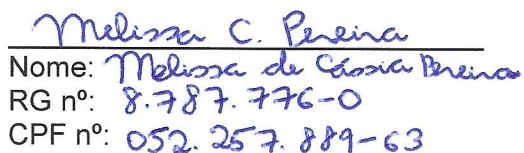 Melissa C. Pereira
Nome: Melissa de Cássia Pereira
RG nº: 8.787.776-0
CPF nº: 052.257.889-63